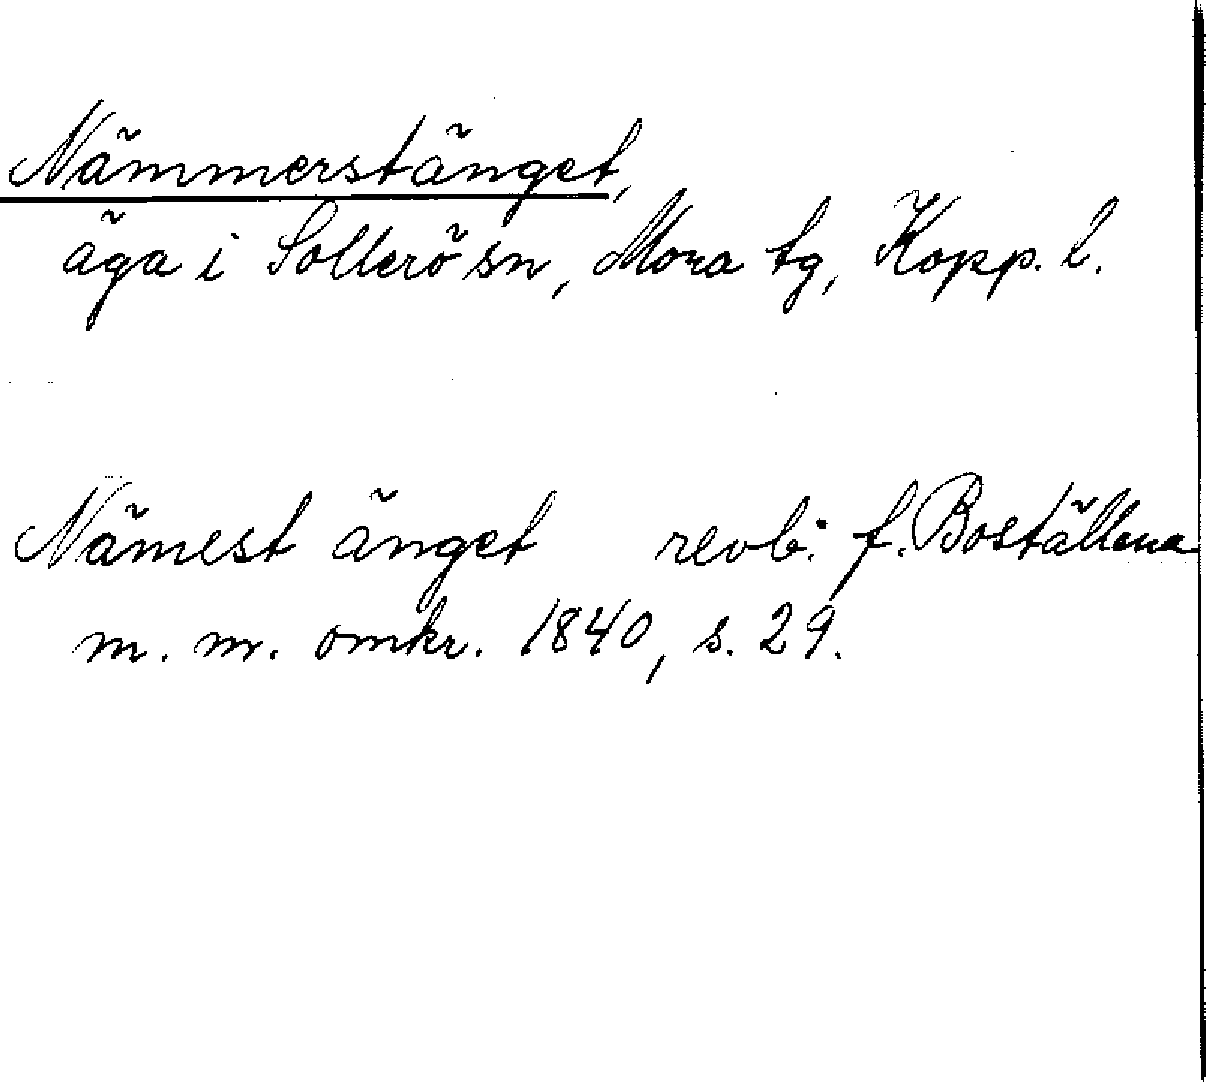 Nämmerstänget,
äga i Sollerö sn, Mora tg, Kopp. l.
Nämest änget revb. f. Boställena
m. m. omkr. 1840, s. 29.